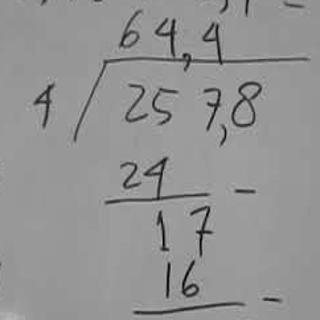 64,4
4 / 257,8
24 -
17
16 -